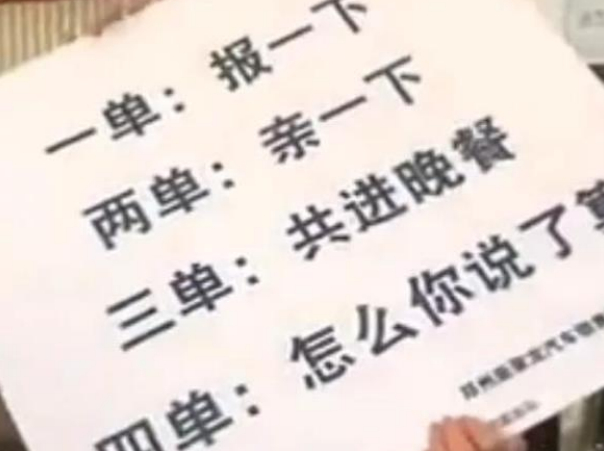 一单：报一下
两单：亲一下
三单：共进晚餐
四单：怎么你说了算